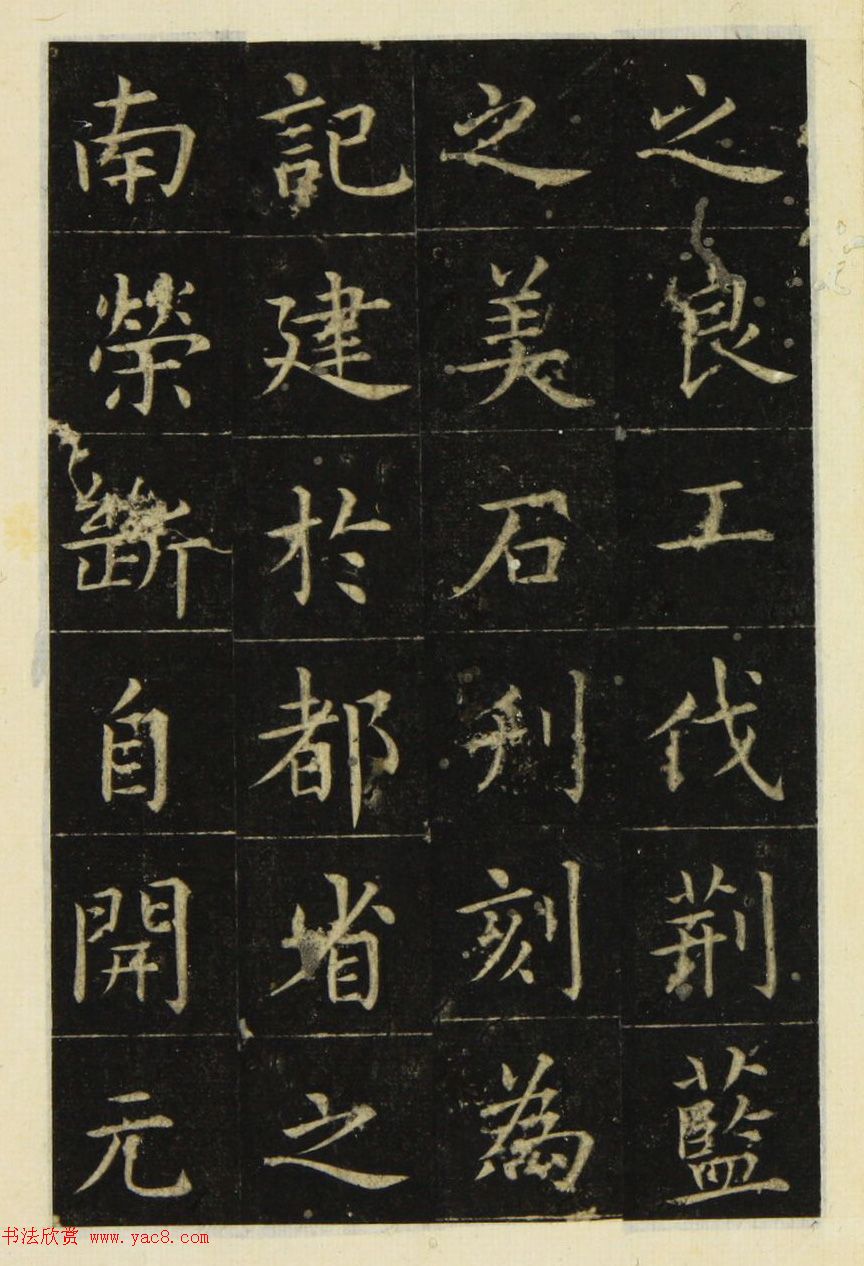 之良工伐荆藍
之美石刋刻為
記建於都省之
南榮斷自開元
书法欣赏 www.yac8.com